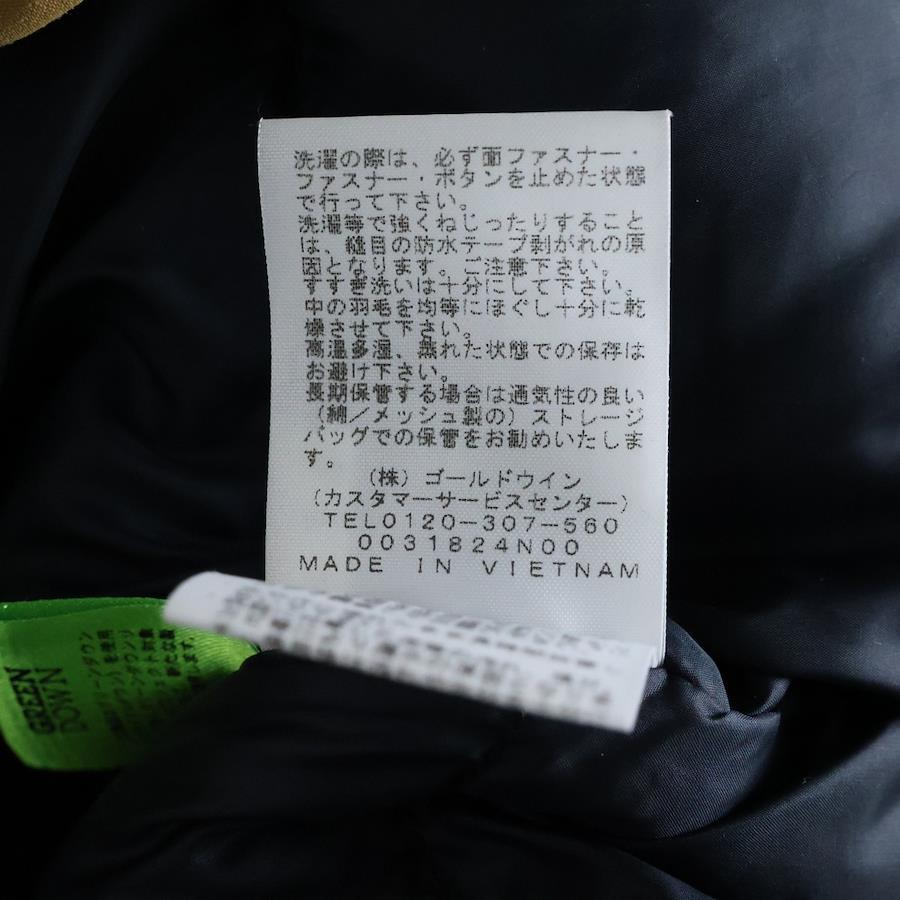 洗濯の際は、必ず面ファスナー・
ファスナー・ボタンを止めた状態
で行って下さい。
洗濯等で強くねじったりすること
は、縫目の防水テープ剥がれの原
因となります。ご注意下さい。
すすぎ洗いは十分にして下さい。
中の羽毛を均等にほぐし十分に乾
燥させて下さい。
高温多湿、蒸れた状態での保存は
お避け下さい。
長期保管する場合は通気性の良い
（綿／メッシュ製の）ストレージ
バッグでの保管をお勧めいたしま
す。
（株）ゴールドウイン
（カスタマーサービスセンター）
TEL0120-307-560
0031824N00
MADE IN VIETNAM
GREEN
DOWN